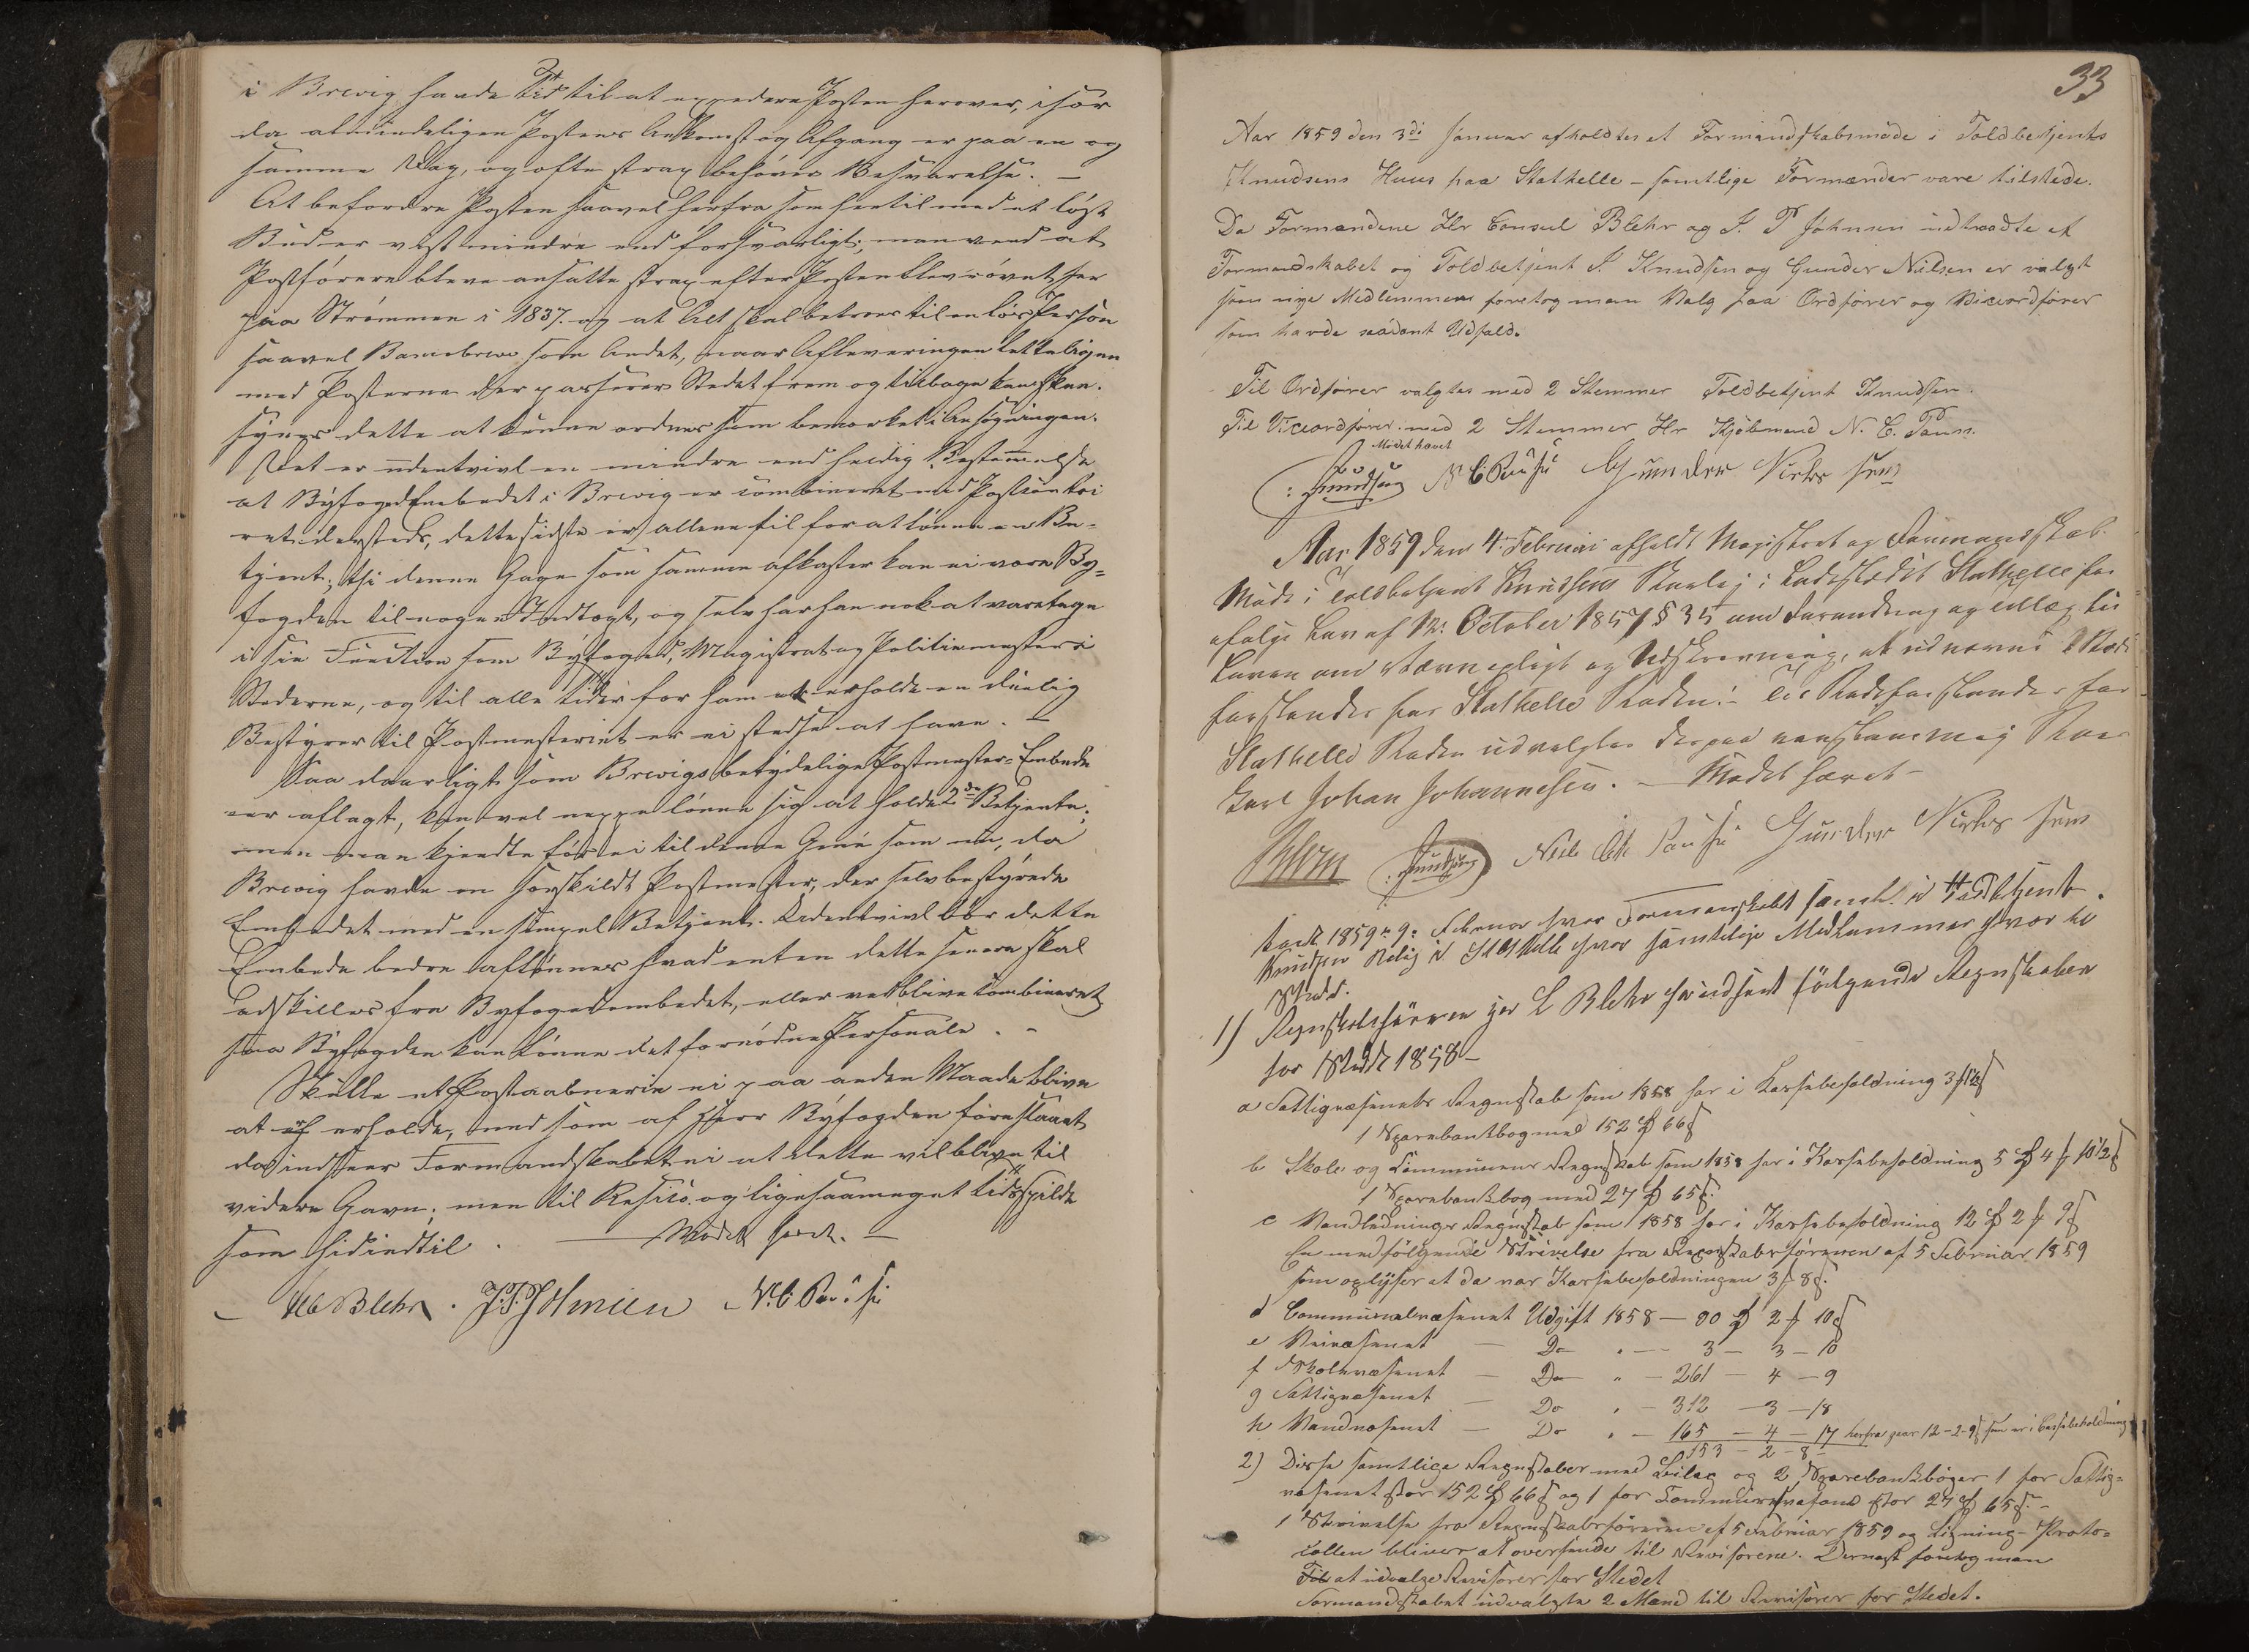 i Brevig havde Tid til at expedere Posten herover, især
da almindeligen Postens Ankomst og Afgang er paa en og
samme Dag, og ofte strax behøver Besvarelse. —
At befordre Posten saavel herfra som hertil med et løst
Bud er vist mindre end forsvarligt; man veed at
Postførere bleve ansatte strax efter Posten blev røvet her
paa Strømmen i 1837. og at Alt skal betroes til en løs Person
saavel Bancobreve som Andet, naar Afleveringen
med Posterne der passerer Stedet frem og tilbage kan skee.
synes dette at kunne ordnes som bemærket i Ansøgningen.
Det er udentvivl en mindre end heldig Bestemmelse
at Byfogedembedet i Brevig er combineret med Postconto-
ret dersteds, dette sidste er allene til for at lønne en Be-
tjent; thi denne Gage som samme afkaster kan ei være By-
fogden til nogen Indtægt, og selv har han nok at varetage
i sin Function som Byfoged, Magistrat og Politiemester i
Stederne, og til alle Tider for ham at erholde en duelig
Bestyrer til Postmesteriet er ei stedse at have. —
Saa daarligt som Brevigs betydelige Postmester-Embede
er aflagt, kan vel neppe lønne sig at holde 2de Betjente;
men man kjendte før ei til denne Gene som nu, da
Brevig havde en særskildt Postmester, der selv bestyrede
Embedet med en simpel Betjent. Udentvivl bør dette
Embede bedre aflønnes hvad enten dette senere skal
adskilles fra Byfogedembedet, eller vedblive combineret
saa Byfogden kan lønne det fornødne Personale. -
Skulle et Postaabnerie ei paa anden Maade blive
at erholde, end som af Herr Byfogden foreslaaet
da indseer Formandskabet ei at dette vil blive til
videre Gavn; men til Risico og ligesaameget Tidsspilde
som hidindtil. — Mødet hævet. —
Blehr. J. P. Johnsen N. C. Pauss
33
Aar 1859 den 3di Januar afholdtes et Formandskabsmøde i Toldbetjents
Knudsens Huus paa Stathelle - samtlige Formænder vare tilstede.
Da Formændene Hr Consul Blehr og J. P Johnsen udtraadte af
Formandskabet og Toldbetjent J. Knudsen og Gunder Nilsen er valgt
som nye Medlemmer foretog man Valg paa Ordfører og Viceordfører
som havde saadant Udfald.
Til Ordfører valgtes med 2 Stemmer Toldbetjent Knudsen.
Til Viceordfører med 2 Stemmer Hr Kjøbmand N. C. Pauss.
Mødet hævet
Knudsen N C Pauss Gunder Nielssen
Aar 1859 den 4. Februar afholdt Magistrat og Formandskab
Møde i Toldbetjent Knudsens Huusleje i Ladestedet Stathelle for
ifølge Lov af 12. October 1857 § 35 om Forandring og Tillæg til
Loven om Værnepligt og Udskrivning, at udnævne 1 Rode
forstander for Stathelle Roden. - Til Rodeforstander for
Stathelle Roden udvalgtes derpaa
Carl Johan Johannesen. — Mødet hævet -
Knudsen Niels Pauss Gunder Nielssen
Aaret 1859 d. 9. Februar var Formandskabet samlet i Toldbetjent
Knudsen Bolig i Stathelle hvor samtlige Medlemmer var til
Stede.
1) Regnskabsføreren Hr C Blehr har indsendt følgende Regnskaber
for Stedet 1858 -
a Fattigvæsenets Regnskab som 1858 har i Kassebeholdning
1 Sparebankbog med 152 66
b Skole og Communens Regnskab som 1858 har i Kassebeholdning 5 4 10½
1 Sparebankbog med 27 65
c Vandledninger Regnskab som 1858 har i Kassebeholdning 12 2 9
En medfølgende Skrivelse fra Regnskabsføreren af 5 Februar 1859
som oplyser at da var Kassebeholdningen 3 8
d Communalvæsenet Udgift 1858 — 90 2 10
e Veivæsenet — Do " — 3 — 3 — 10
f Skolevæsenet — Do " — 261 — 4 — 9
g Fattigvæsenet — Do " — 312 — 3 — 18
h Vandvæsenet — Do " — 165 — 4 — 17 herfra gaar 12-2-9 som er i Cassebeholdning
153 - 2 - 8 -
2) Disse samtlige Regnskaber med Bilag og 2 Sparebankbøger 1 for Fattig-
væsenet stor 152 66 og 1 for stor 27 65 -
1 Skrivelse fra Regnskabsføreren af 5 Februar 1859 og Ligning-Proto-
collen bliver at oversende til Revisorene. Dernæst foretog man
Til at udvalge Revisorer for Stedet
Formandskabet udvalgte 2 Mænd til Revisorer for Stedet.